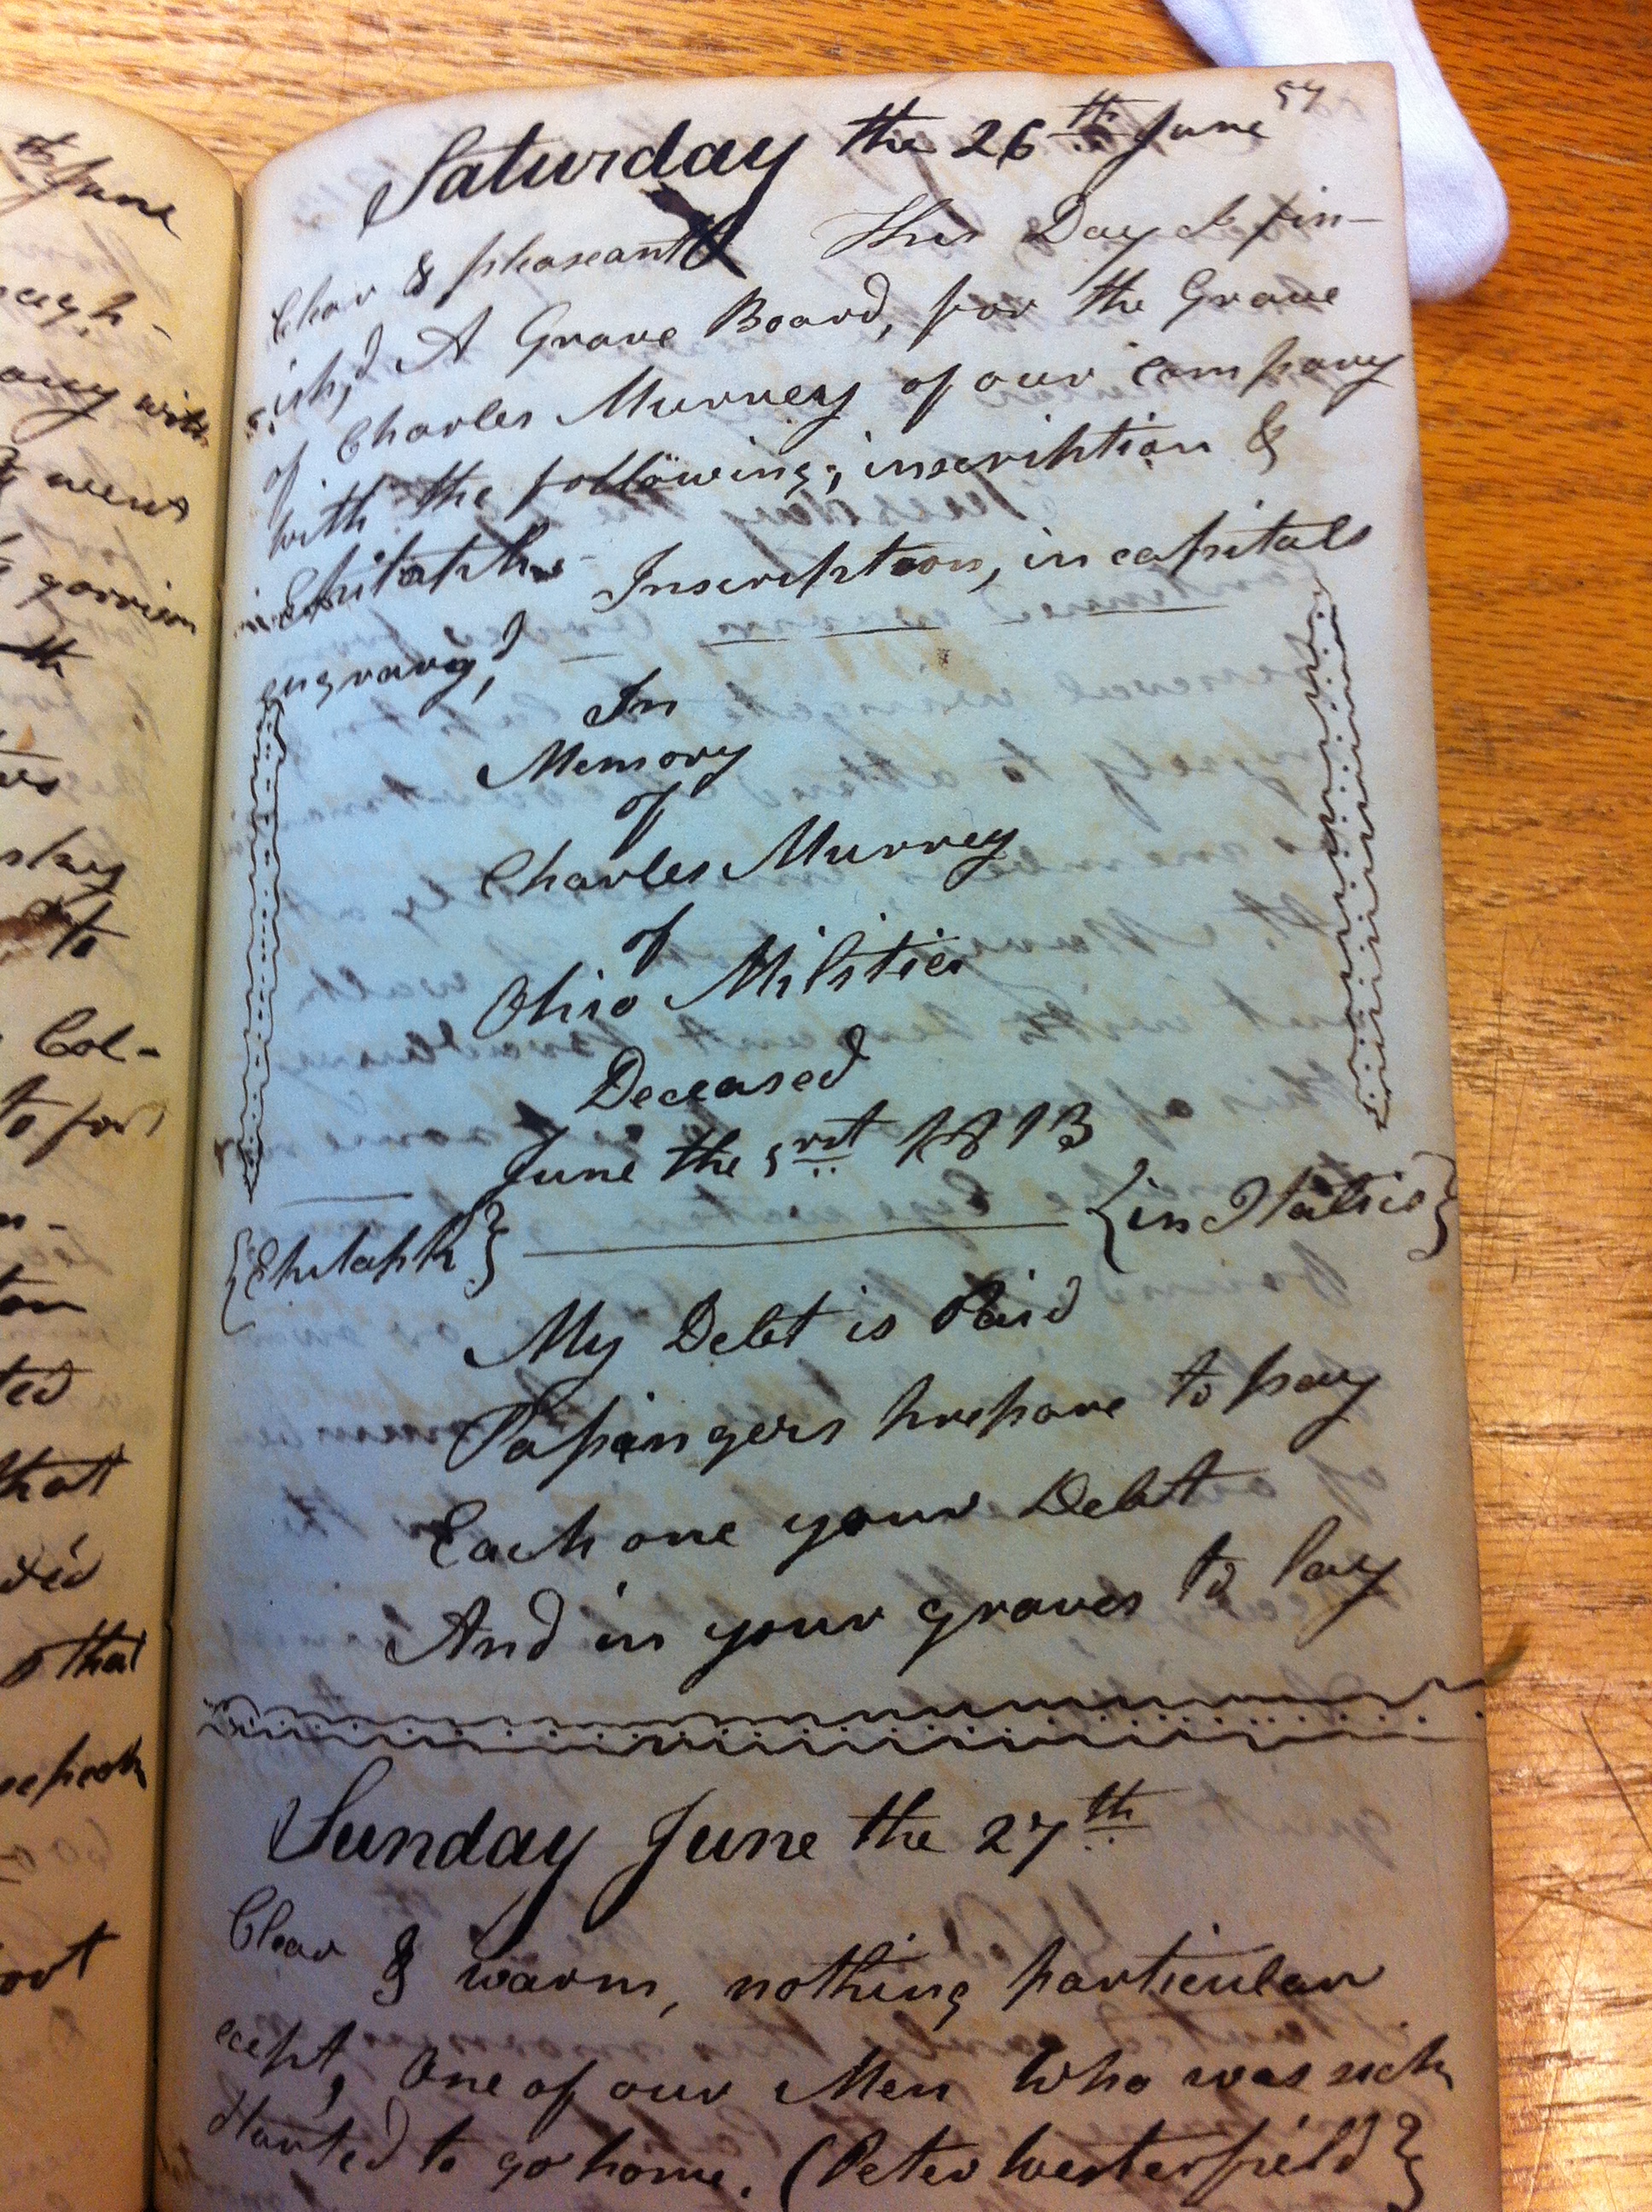 57
Saturday the 26th June
Clear & pleasant This Day I fin-
ish,d A Grave Board, for the Grave
of Charles Murrey of our company
with the following; inscription &
Epitaph Inscription, in capitals
engraved,
In
Memory
of
Charles Murrey
of
Ohio Militia
Deceased
June the 1rst 1813
{Epitaph} {in Italics}
My Debt is Paid
Passingers prepare to pay
Each one your Debt
And in your graves to lay
Sunday June the 27th
Clear & warm, nothing particular
except, One of our Men Who was sick
Started to go home. (Peter Westerfield}
th June
with
went
garrison
th
to
Col-
to for
ted
that
that